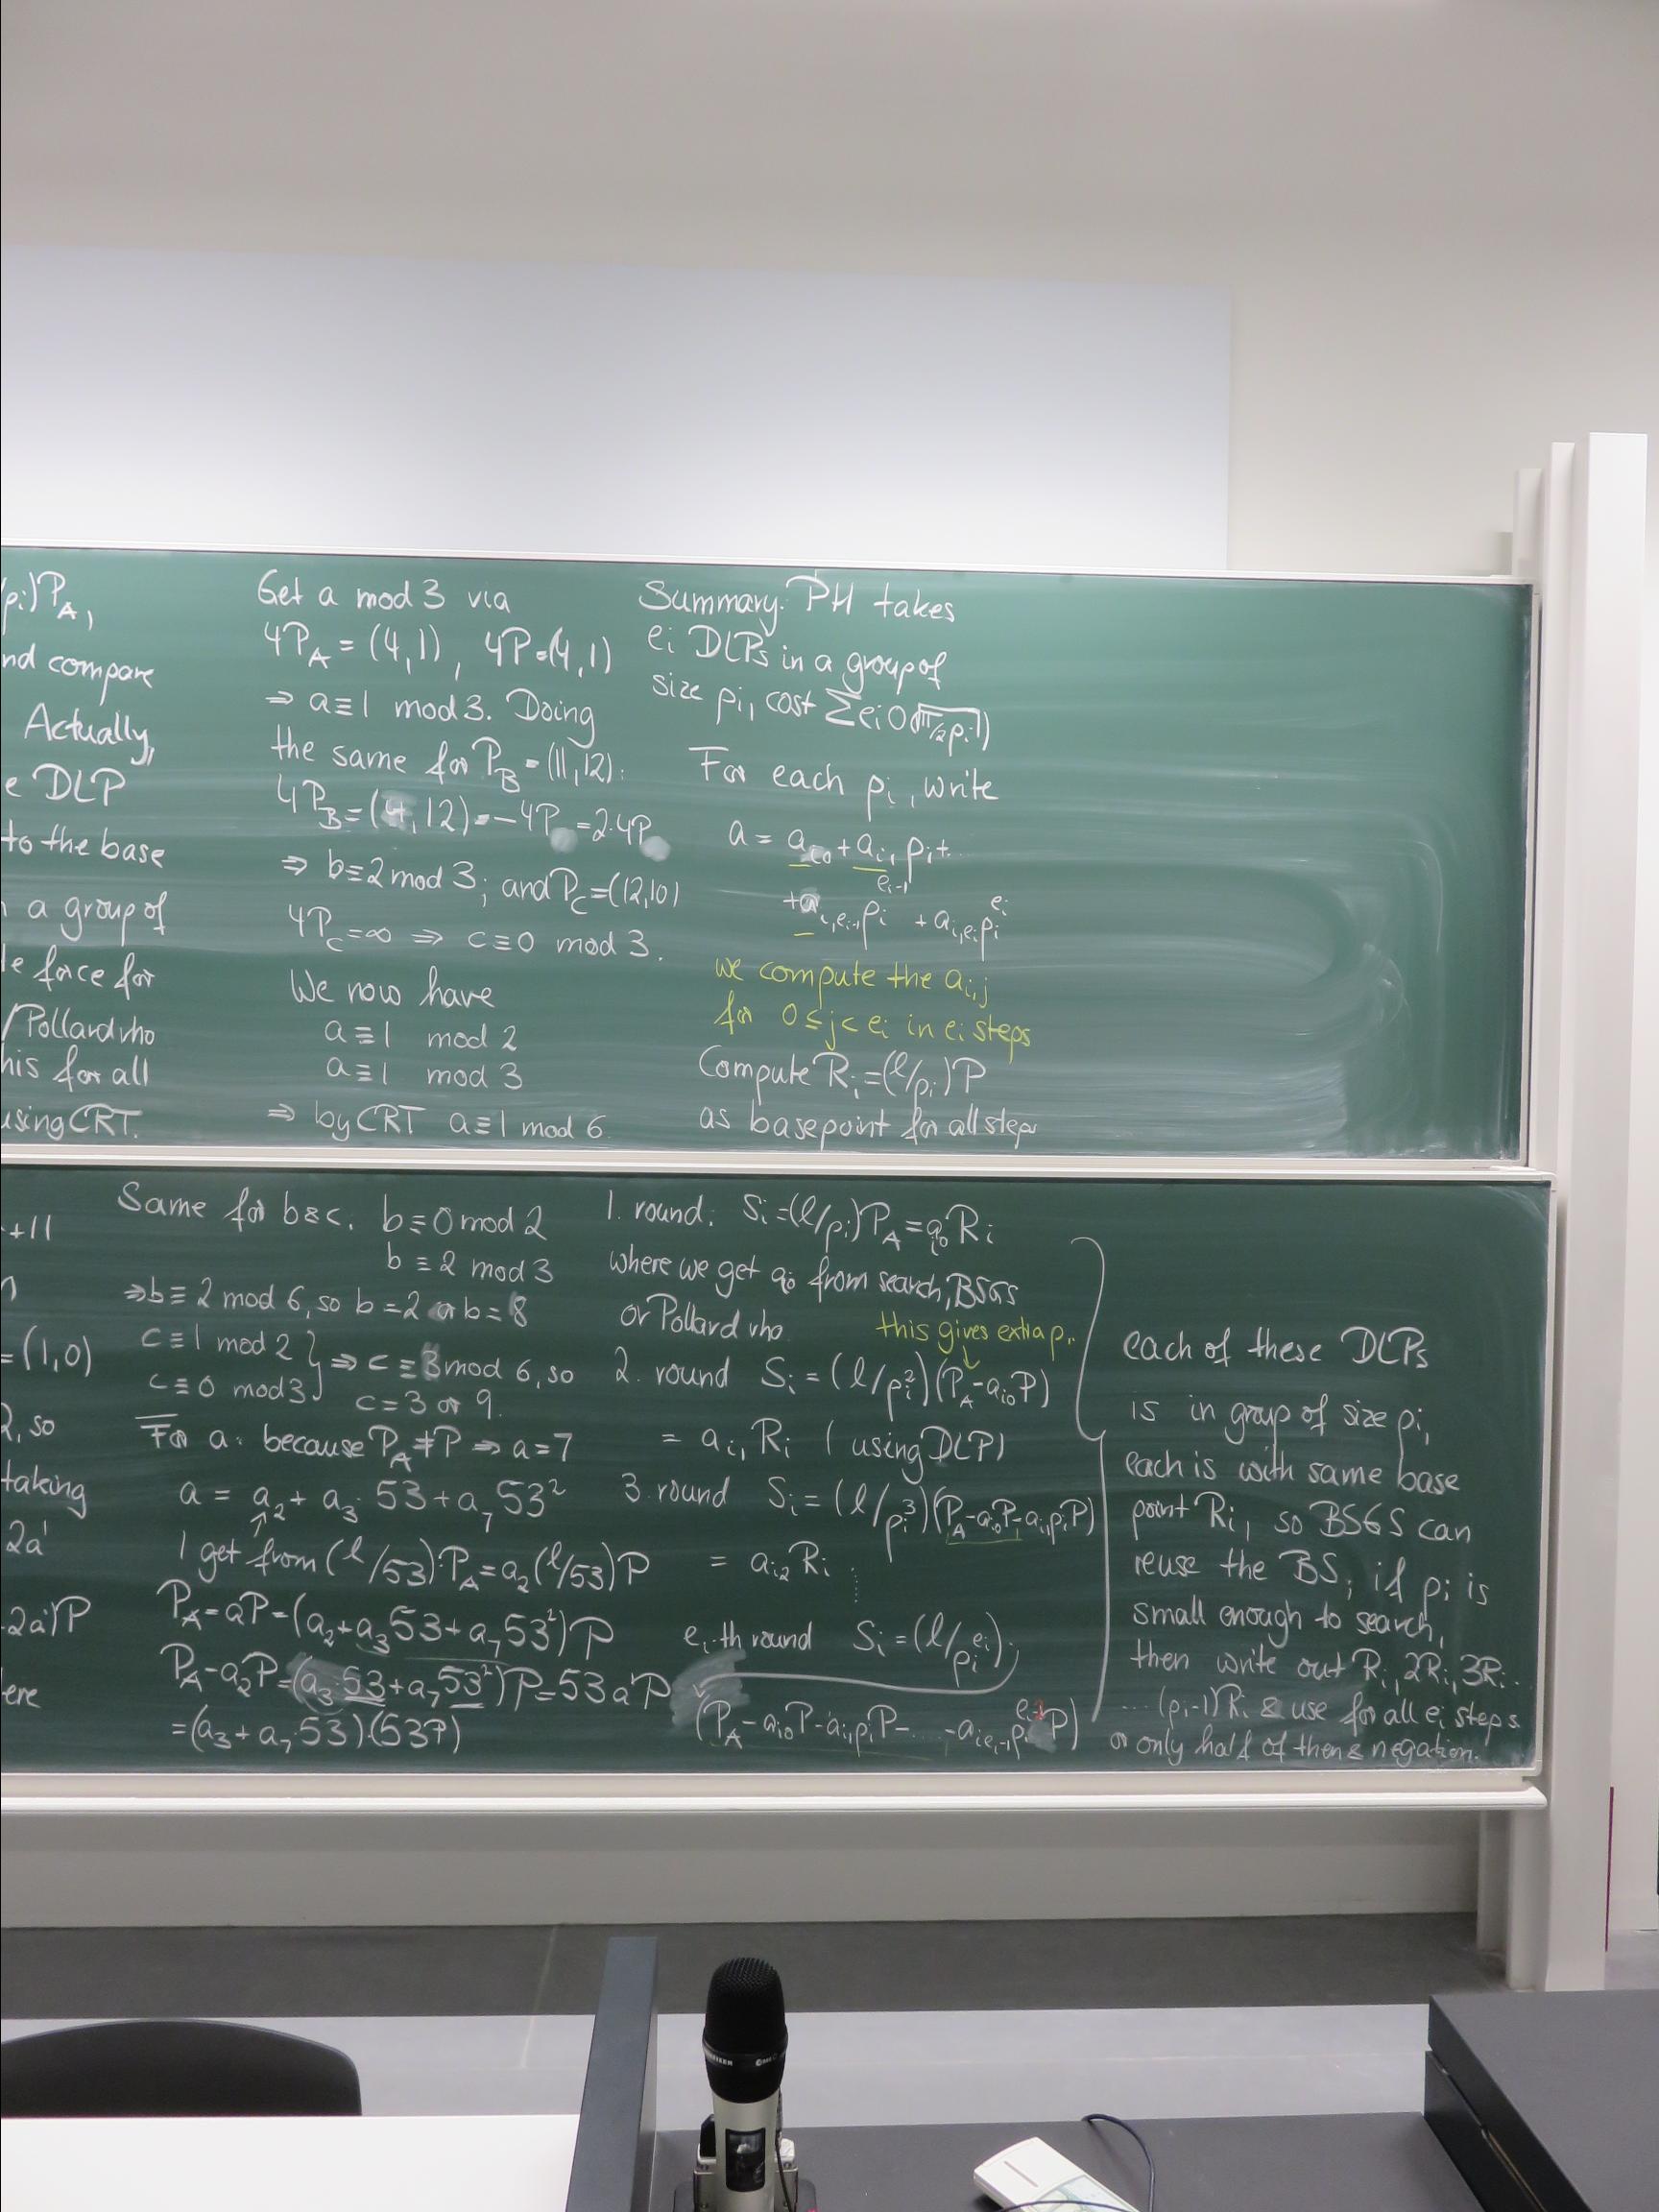 pi)P_A,
nd compare
Actually,
e DLP
to the base
a group of
le force for
/Pollard rho
his for all
using CRT.
Get a mod 3 via
4P_A = (4,1), 4P=(4,1)
⇒ a≡1 mod 3. Doing
the same for P_B = (11,12):
4P_B = (4,12) = -4P = 2·4P
⇒ b≡2 mod 3; and P_C=(12,10)
4P_C=∞ ⇒ c≡0 mod 3.
We now have
a≡1 mod 2
a≡1 mod 3
⇒ by CRT a≡1 mod 6.
Summary: PH takes
e_i DLPs in a group of
size p_i, cost Σ e_i O(√(π/2 p_i))
For each p_i, write
a = a_{i0} + a_{i,1} p_i + ..
+ a_{i,e_i-1} p_i^{e_i-1} + a_{i,e_i} p_i^{e_i}
we compute the a_{i,j}
for 0≤j<e_i in e_i steps
Compute R_i = (l/p_i)P
as base point for all steps
+11
=(1,0)
2, so
taking
2a'
2a')P
ere
Same for b&c. b≡0 mod 2
b≡2 mod 3
⇒ b≡2 mod 6, so b=2 or b=8
c≡1 mod 2
c≡0 mod 3 } ⇒ c≡3 mod 6, so
c=3 or 9.
For a: because P_A≠P ⇒ a=7
a = a_2 + a_3·53 + a_7 53^2
↑
I get from (l/53)·P_A = a_2(l/53)P
P_A = aP = (a_2+a_3 53+a_7 53^2)P
P_A - a_2P = (a_3·53+a_7 53^2)P = 53a'P
= (a_3 + a_7·53)·(53P)
1. round: S_i = (l/p_i)P_A = a_{i0}R_i
where we get a_{i0} from search, BSGS
or Pollard rho.
this gives extra p_i.
2. round S_i = (l/p_i^2)(P_A - a_{i0}P)
= a_{i,1}R_i (using DLP)
3. round S_i = (l/p_i^3)(P_A - a_{i0}P - a_{i,1}p_iP)
= a_{i2}R_i
e_i-th round S_i = (l/p_i^{e_i})·
(P_A - a_{i0}P - a_{i,1}p_iP - .... - a_{i e_i-1}p_i^{e_i-1}P)
each of these DLPs
is in group of size p_i,
each is with same base
point R_i, so BSGS can
reuse the BS; if p_i is
small enough to search,
then write out R_i, 2R_i, 3R_i..
.... (p_i-1)R_i & use for all e_i steps
or only half of them & negation.